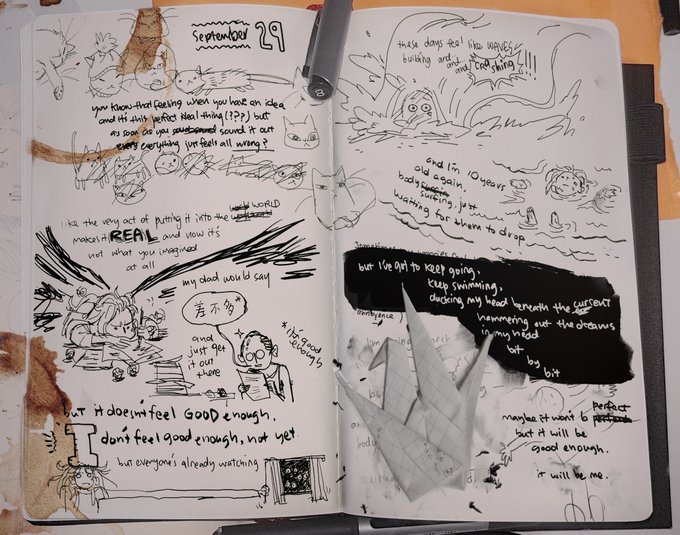 September 29
you know that feeling when you have an idea
and it's this perfect ideal thing (???) but
as soon as you sound it out
everything just feels all wrong?
like the very act of putting it into the WORLD
makes it REAL and now it's
not what you imagined
at all
my dad would say
差不多*
and
just get
it out
there
*it's good
enough
but it doesn't feel GOOD enough.
I don't feel good enough, not yet.
but everyone's already watching
these days feel like WAVES
building and and
and crashing!!!
and I'm 10 years
old again,
body surfing, just
waiting for them to drop
but I've got to keep going.
keep swimming,
ducking my head beneath the current
hammering out the dreams
in my head
bit
by
bit
maybe it won't b perfect
but it will be
good enough.
it will be me.